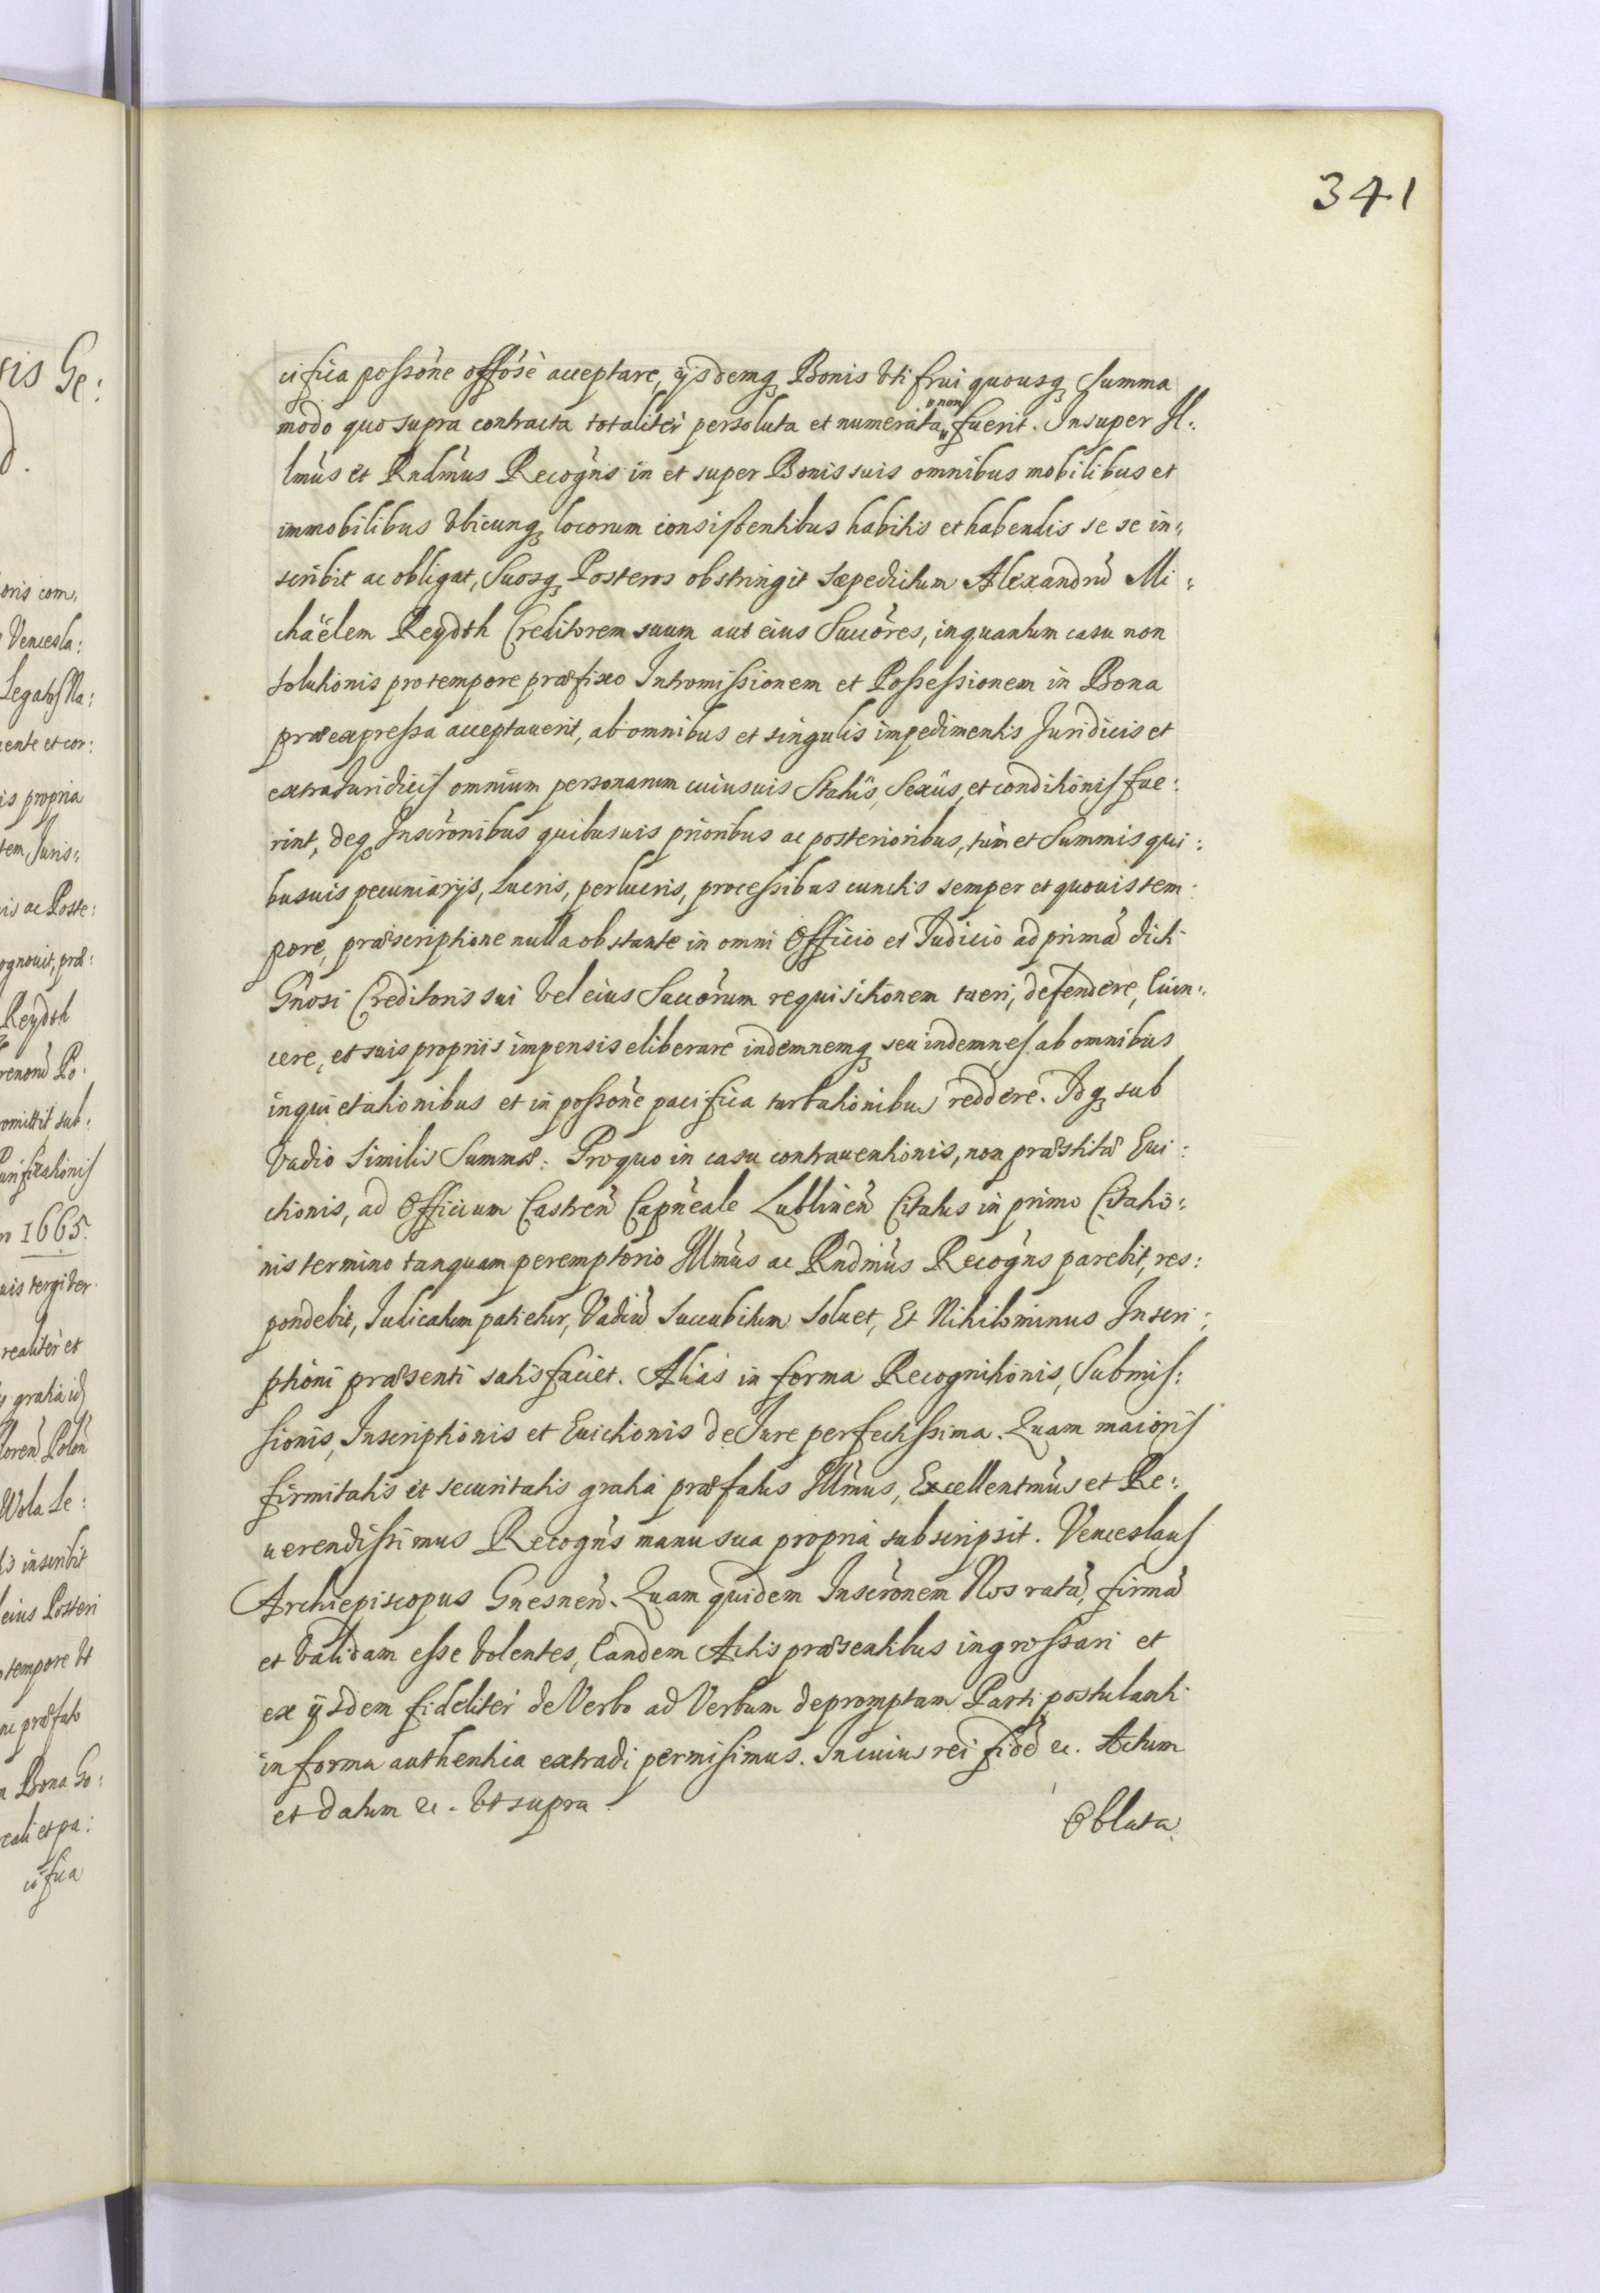 341
cifica possone offose acceptare, ijsdemq Bonis vti frui quousq Summa
modo quo supra contracta totaliter persoluta et numerata non fuerit. Insuper Il-
lmus et Rndmus Recogns in et super Bonis suis omnibus mobilibus et
immobilibus vbicunq locorum consistentibus habitis et habendis se se in-
scribit ac obligat, Suosq Posteros obstringit sæpedictum Alexandrū Mi:
chaëlem Reydth Creditorem suum aut eius Succores, inquantum casu non
solutionis pro tempore præfixo Intromissionem et Possessionem in Bona
præexpressa acceptauerit, ab omnibus et singulis impedimentis Juridicis et
extraJuridicis omnium personarum cuiusuis Statûs, Sexûs, et conditionis fue:
rint, deq Inscronibus quibusuis prioribus ac posterioribus, tum et Summis qui:
busuis pecuniarijs, Lucris, perlucris, processibus cunctis semper et quouis tem:
pore, præscriptione nulla obstante in omni Officio et Judicio ad primā dicti
Gnosi Creditoris sui vel eius Succorum requisitionem tueri, defendere, Euin-
cere, et suis propriis impensis eliberare indemnemq seu indemnes ab omnibus
inquietationibus et in possone pacifica turbationibus reddere. Idq sub
Vadio similis Summæ: Pro quo in casu contrauentionis, non præstitæ Eui:
ctionis, ad Officium Castren Capneale Lublinen Citatus in primo Citatio:
nis termino tanquam peremptorio Illmus ac Rndmus Recogns parebit, res:
pondebit, Judicatum patietur, Vadiū succubitum soluet, Et Nihilominus Inscri:
ptioni præsenti satisfaciet. Aliàs in forma Recognitionis, Submis:
sionis, Inscriptionis et Euictionis de Jure perfectissima. Quam maioris
firmitatis et securitatis gratiâ præfatus Illmus, Excellentmus et Re:
uerendissimus Recogns manu sua propriâ subscripsit. Venceslaus
Archiepiscopus Gnesnen. Quam quidem Inscronem Nos ratā, firmā
et validam esse volentes, Eandem Actis præsentibus ingrossari et
ex ijsdem fideliter de Verbo ad Verbum depromptam Parti postulanti
in forma authentica extradi permisimus. In cuius rei fidē &c. Actum
et datum &c. vt supra.
Oblata